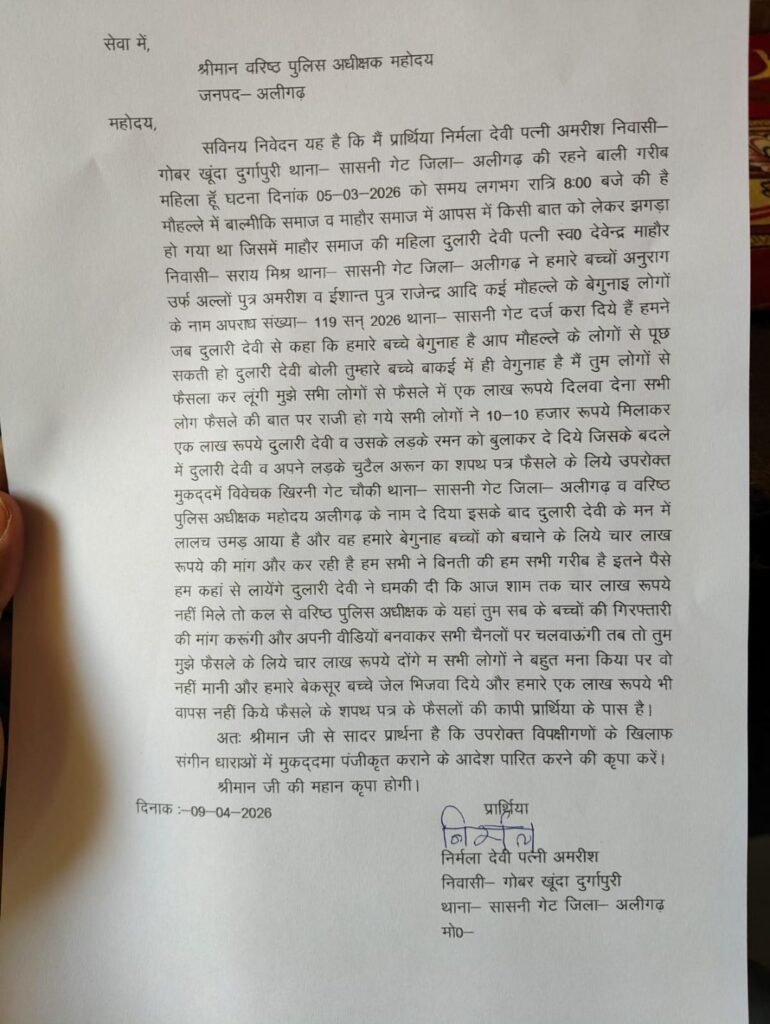 सेवा में,
श्रीमान वरिष्ठ पुलिस अधीक्षक महोदय
जनपद– अलीगढ़
महोदय,
सविनय निवेदन यह है कि मैं प्रार्थिया निर्मला देवी पत्नी अमरीश निवासी–
गोबर खूंदा दुर्गापुरी थाना– सासनी गेट जिला– अलीगढ़ की रहने बाली गरीब
महिला हूँ घटना दिनांक 05–03–2026 को समय लगभग रात्रि 8:00 बजे की है
मौहल्ले में बाल्मीकि समाज व माहौर समाज में आपस में किसी बात को लेकर झगड़ा
हो गया था जिसमें माहौर समाज की महिला दुलारी देवी पत्नी स्व0 देवेन्द्र माहौर
निवासी– सराय मिश्र थाना– सासनी गेट जिला– अलीगढ़ ने हमारे बच्चों अनुराग
उर्फ अल्लों पुत्र अमरीश व ईशान्त पुत्र राजेन्द्र आदि कई मौहल्ले के बेगुनाइ लोगों
के नाम अपराध संख्या– 119 सन् 2026 थाना– सासनी गेट दर्ज करा दिये हैं हमने
जब दुलारी देवी से कहा कि हमारे बच्चे बेगुनाह है आप मौहल्ले के लोगों से पूछ
सकती हो दुलारी देवी बोली तुम्हारे बच्चे बाकई में ही वेगुनाह है मैं तुम लोगों से
फैसला कर लूंगी मुझे सभी लोगों से फैसले में एक लाख रूपये दिलवा देना सभी
लोग फैसले की बात पर राजी हो गये सभी लोगों ने 10–10 हजार रूपये मिलाकर
एक लाख रूपये दुलारी देवी व उसके लड़के रमन को बुलाकर दे दिये जिसके बदले
में दुलारी देवी व अपने लड़के चुटैल अरून का शपथ पत्र फैसले के लिये उपरोक्त
मुकद्दमें विवेचक खिरनी गेट चौकी थाना– सासनी गेट जिला– अलीगढ़ व वरिष्ठ
पुलिस अधीक्षक महोदय अलीगढ़ के नाम दे दिया इसके बाद दुलारी देवी के मन में
लालच उमड़ आया है और वह हमारे बेगुनाह बच्चों को बचाने के लिये चार लाख
रूपये की मांग और कर रही है हम सभी ने बिनती की हम सभी गरीब है इतने पैसे
हम कहां से लायेंगे दुलारी देवी ने धमकी दी कि आज शाम तक चार लाख रूपये
नहीं मिले तो कल से वरिष्ठ पुलिस अधीक्षक के यहां तुम सब के बच्चों की गिरफ्तारी
की मांग करूंगी और अपनी वीडियों बनवाकर सभी चैनलों पर चलवाऊंगी तब तो तुम
मुझे फैसले के लिये चार लाख रूपये दोंगे म सभी लोगों ने बहुत मना किया पर वो
नहीं मानी और हमारे बेकसूर बच्चे जेल भिजवा दिये और हमारे एक लाख रूपये भी
वापस नहीं किये फैसले के शपथ पत्र के फैसलों की कापी प्रार्थिया के पास है।
अतः श्रीमान जी से सादर प्रार्थना है कि उपरोक्त विपक्षीगणों के खिलाफ
संगीन धाराओं में मुकद्दमा पंजीकृत कराने के आदेश पारित करने की कृपा करें।
श्रीमान जी की महान कृपा होगी।
दिनाक :–09–04–2026
प्रार्थिया
निर्मला
निर्मला देवी पत्नी अमरीश
निवासी– गोबर खूंदा दुर्गापुरी
थाना– सासनी गेट जिला– अलीगढ़
मो0–